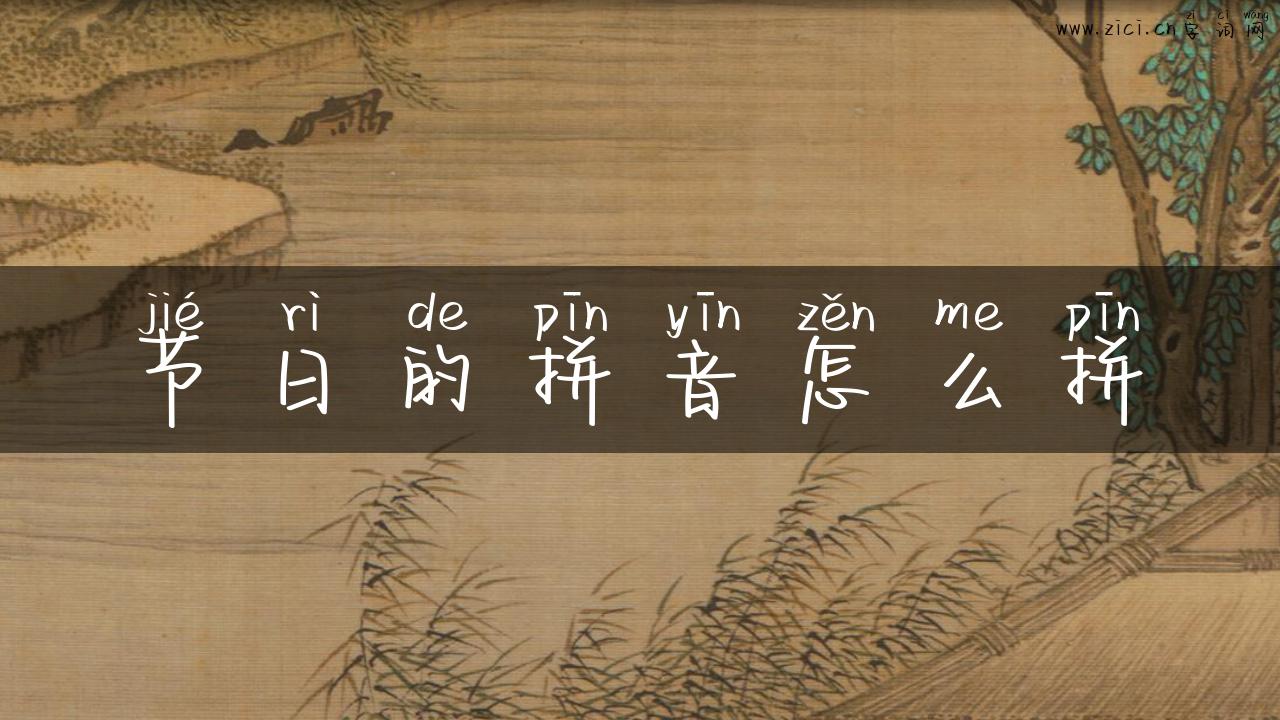 zì cí wǎng
www.zici.cn字词网
jié rì de pīn yīn zěn me pīn
节日的拼音怎么拼